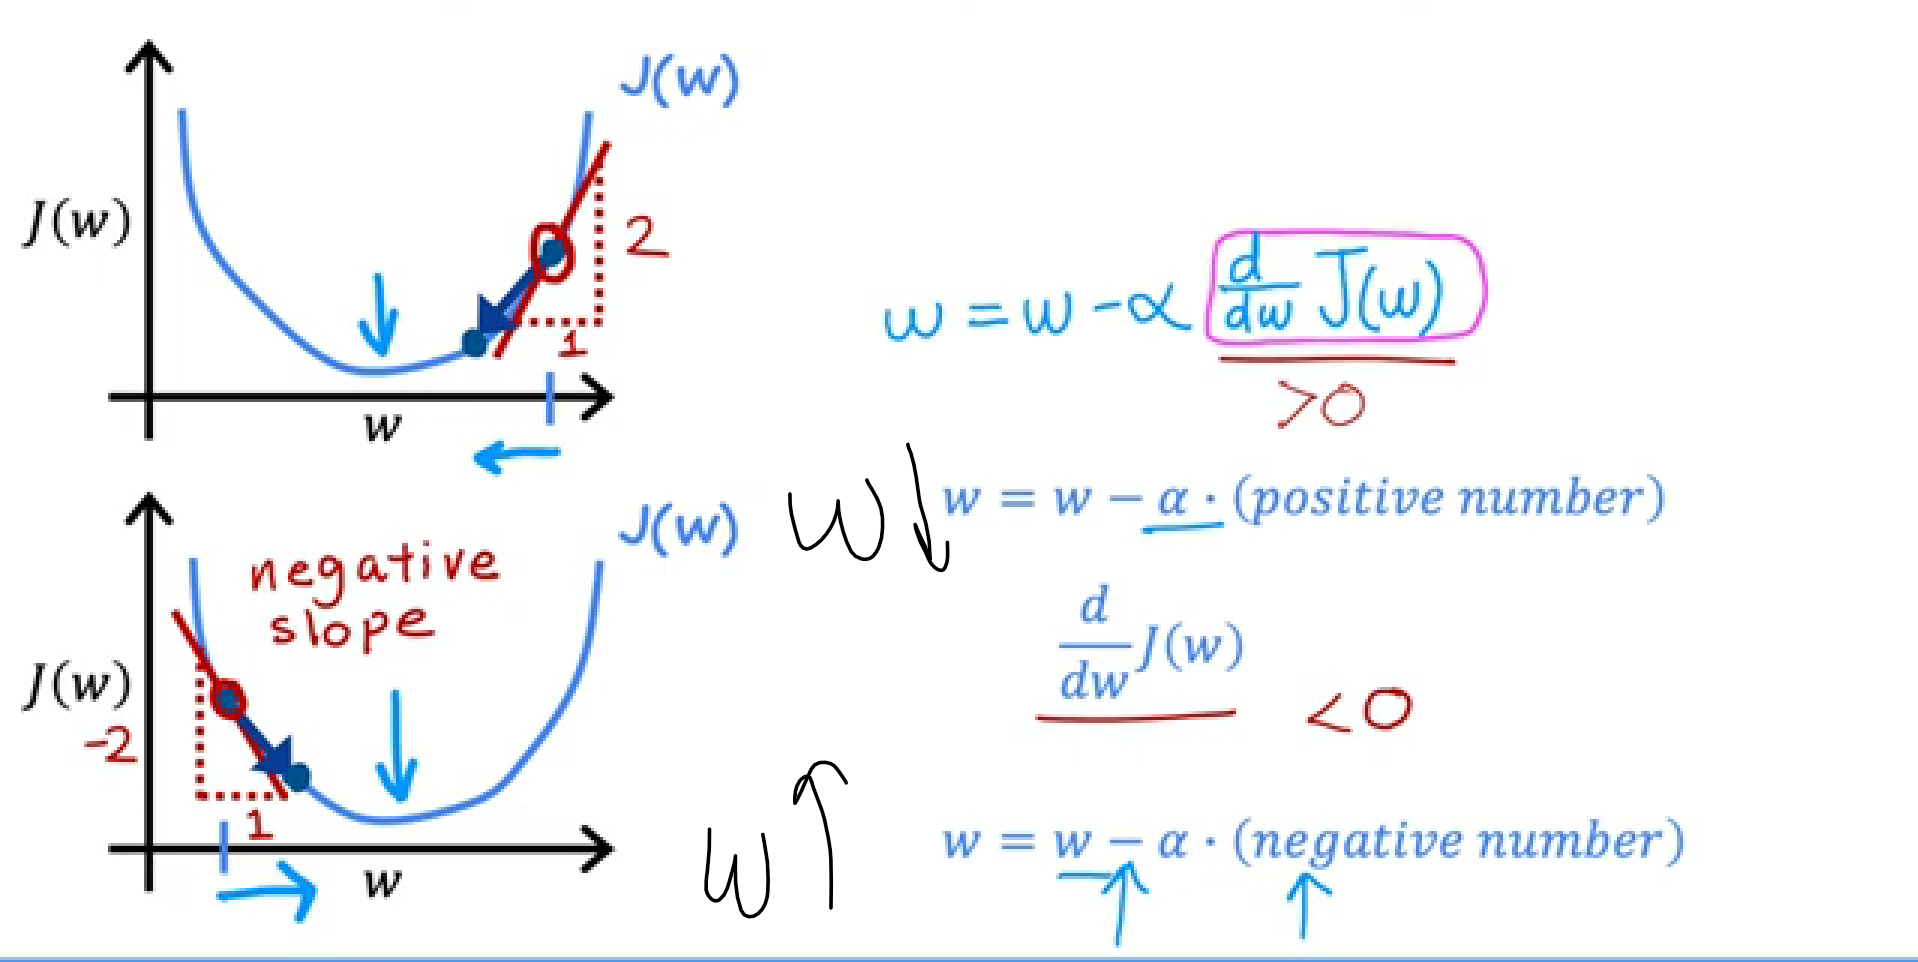 J(w)
J(w)
2
1
w
w = w - α d/dw J(w)
>0
w↓
w = w − α · (positive number)
J(w)
negative
slope
J(w)
-2
1
w
d/dw J(w) <0
w↑
w = w − α · (negative number)